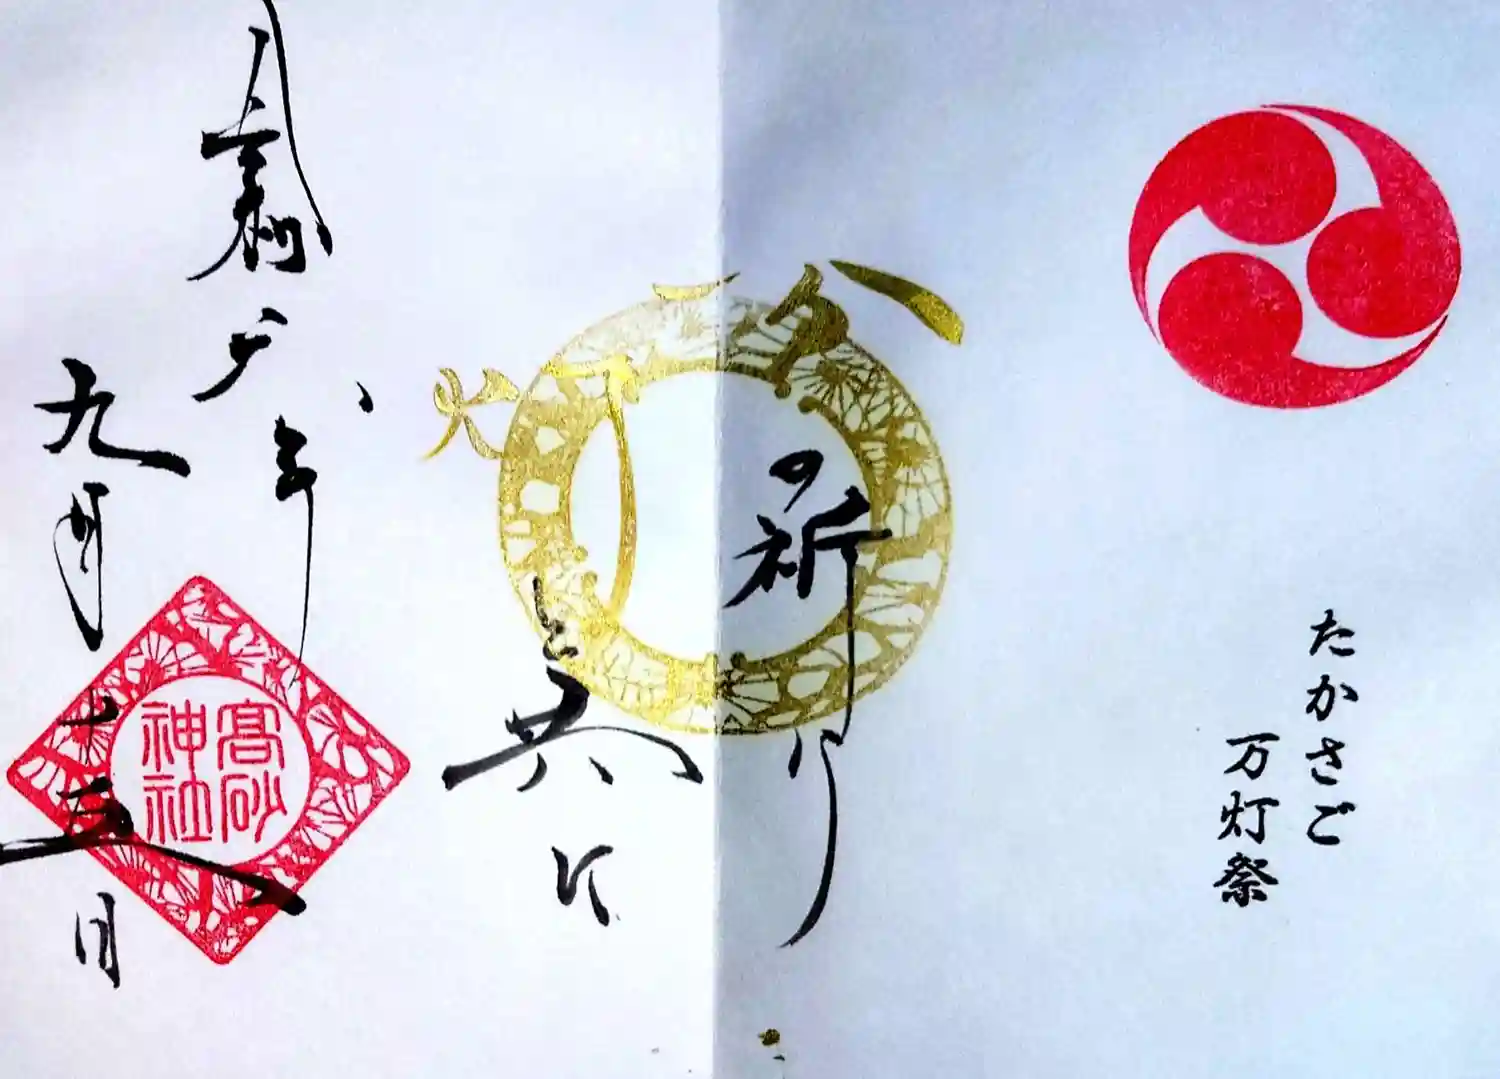 たかさご
万灯祭
の祈り
灯と共に
令和六年
九月十五日
高砂
神社